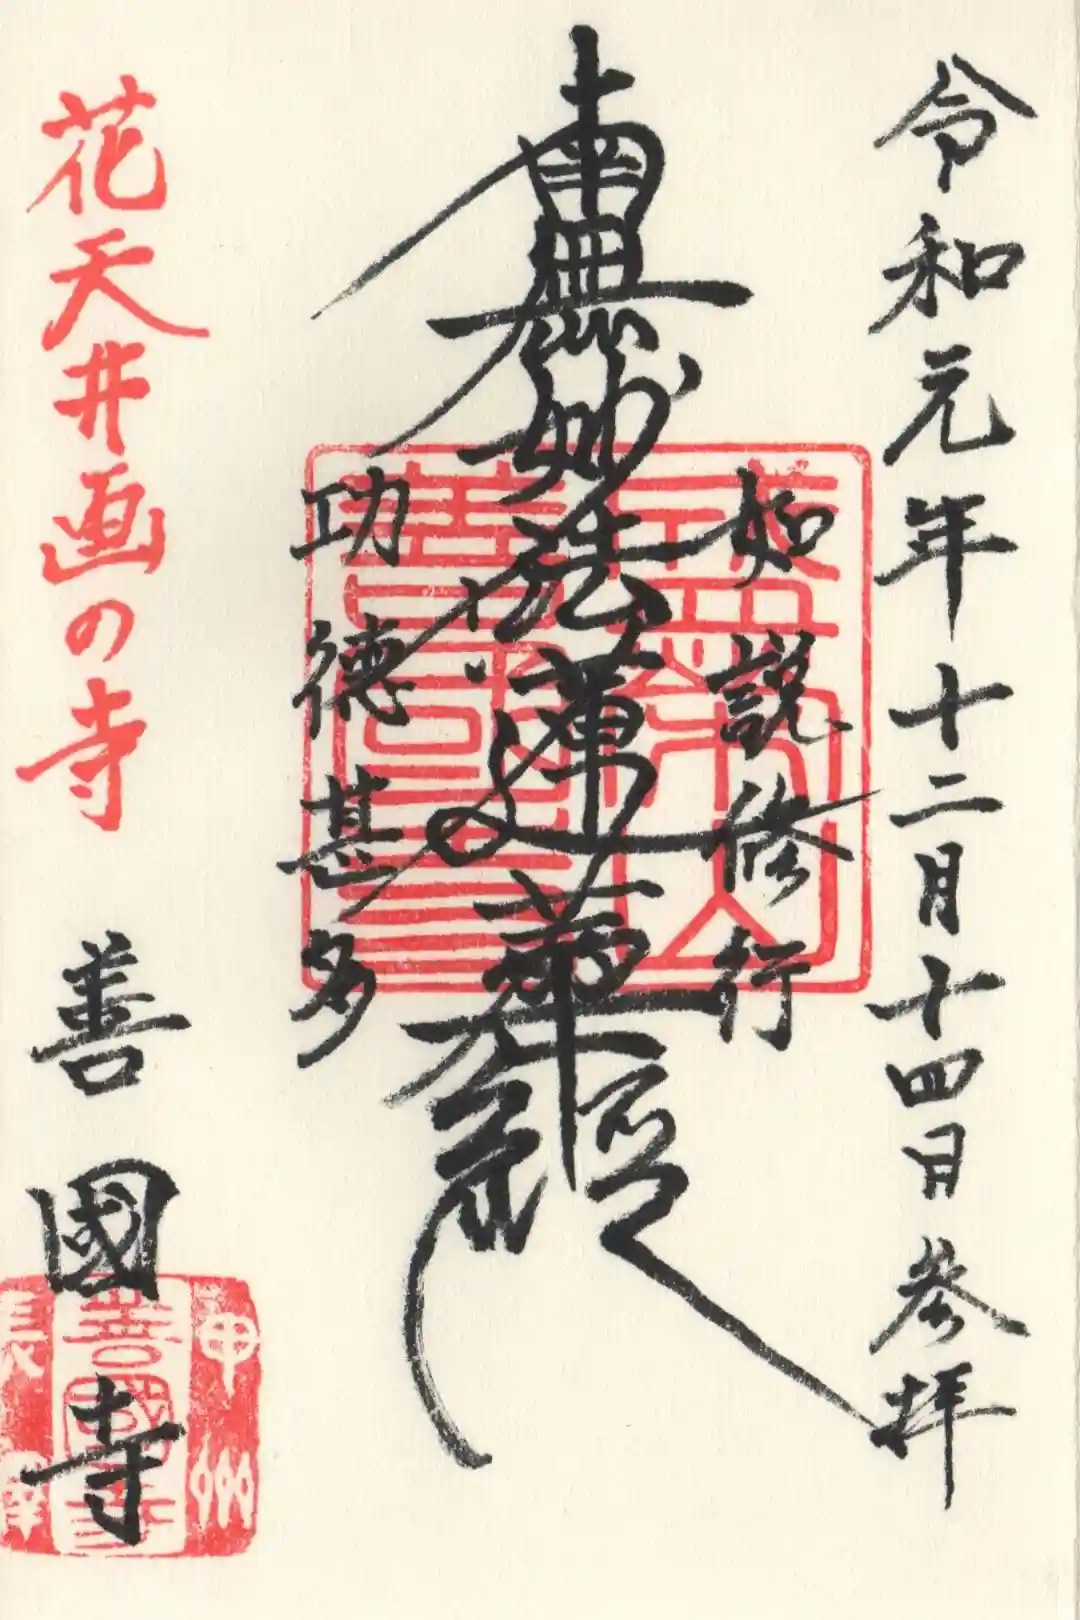 令和元年十二月十四日参拝
如説修行
南無妙法蓮華経
功徳甚多
花天井画の寺
善國寺
甲州
善國寺